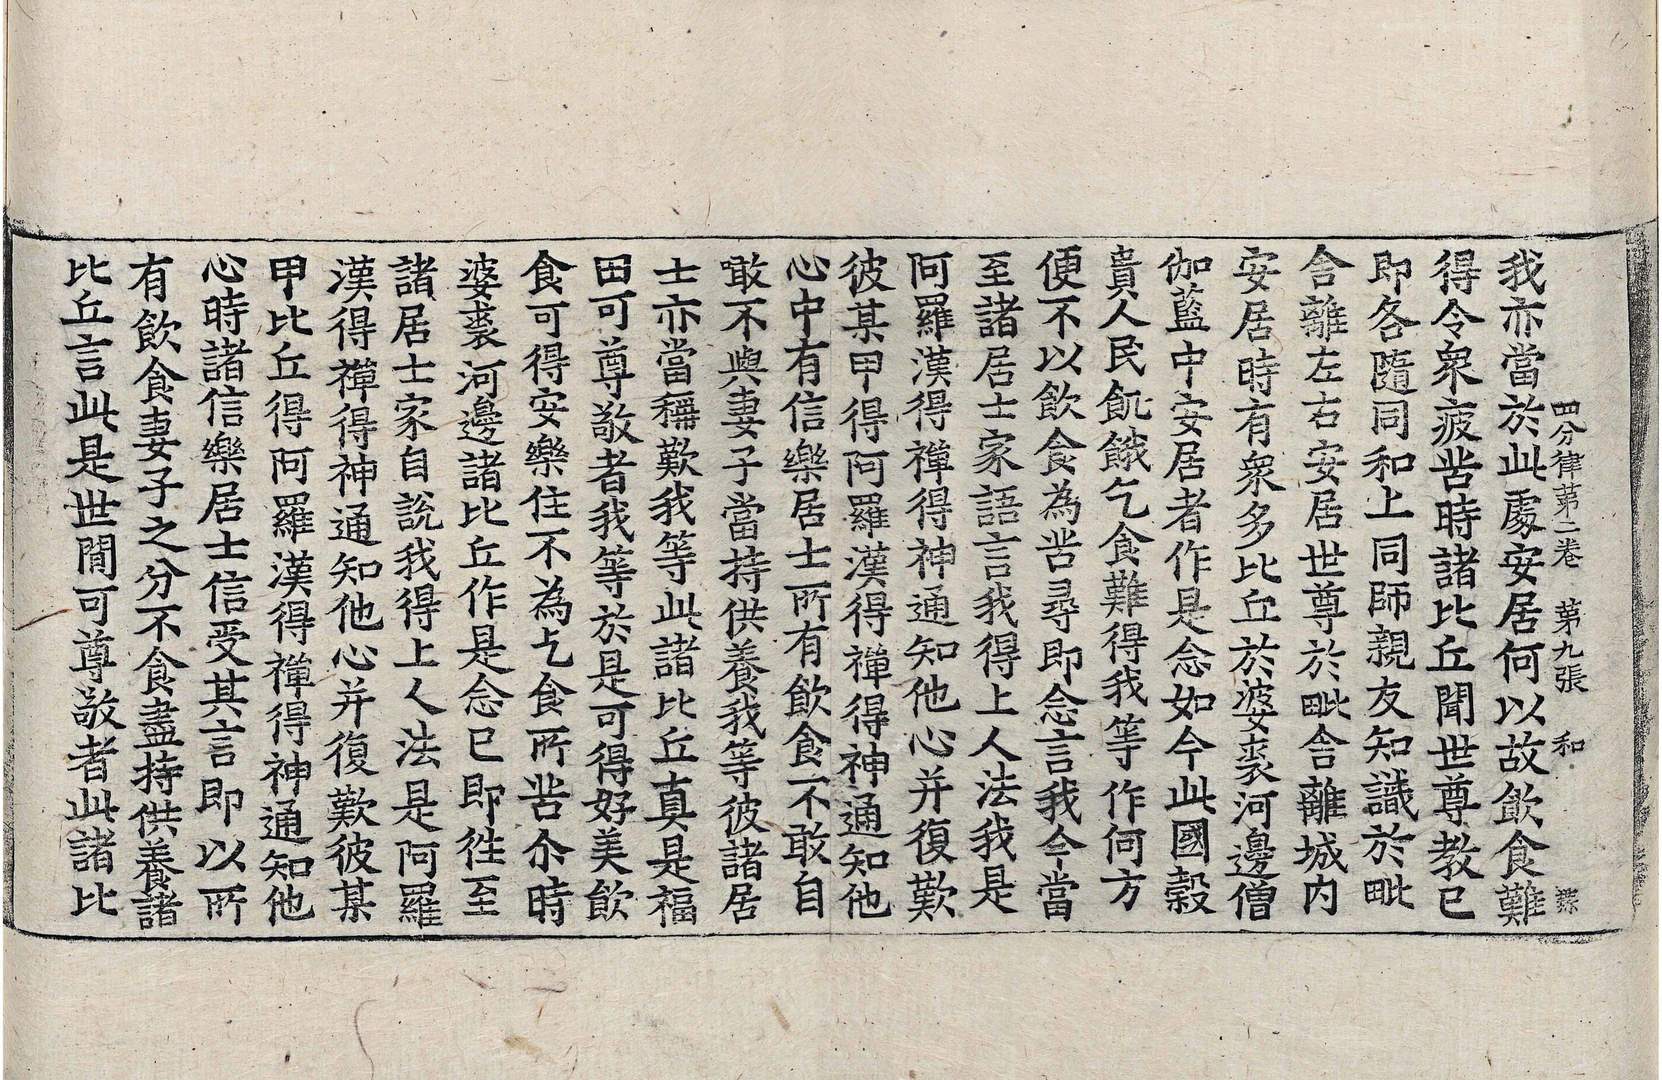 四分律第二卷　第九張　和
我亦當於此處安居何以故飲食難
得令衆疲苦時諸比丘聞世尊教已
即各隨同和上同師親友知識於毗
舍離左右安居世尊於毗舍離城内
安居時有衆多比丘於婆裘河邊僧
伽藍中安居者作是念如今此國穀
貴人民飢餓乞食難得我等作何方
便不以飲食為苦尋即念言我今當
至諸居士家語言我得上人法我是
阿羅漢得禪得神通知他心并復歎
彼某甲得阿羅漢得禪得神通知他
心中有信樂居士所有飲食不敢自
噉不與妻子當持供養我等彼諸居
士亦當稱歎我等此諸比丘真是福
田可尊敬者我等於是可得好美飲
食可得安樂住不為乞食所苦尒時
婆裘河邊諸比丘作是念已即往至
諸居士家自說我得上人法是阿羅
漢得禪得神通知他心并復歎彼某
甲比丘得阿羅漢得禪得神通知他
心時諸信樂居士信受其言即以所
有飲食妻子之分不食盡持供養諸
比丘言此是世間可尊敬者此諸比